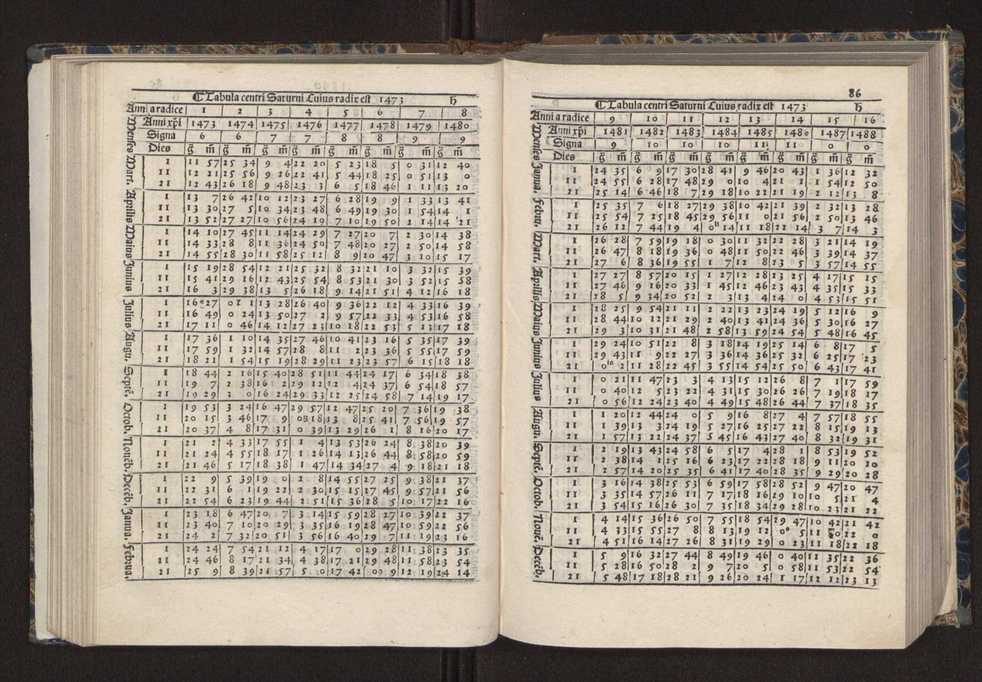 ¶ Tabula centri Saturni Cuius radix est 1473 ♄
Anni a radice | 1 | 2 | 3 | 4 | 5 | 6 | 7 | 8
Anni xp̄i | 1473 | 1474 | 1475 | 1476 | 1477 | 1478 | 1479 | 1480
Signa | 6 | 6 | 7 | 7 | 8 | 8 | 9 | 9
Menses Dies | g̃ m̃ | g̃ m̃ | g̃ m̃ | g̃ m̃ | g̃ m̃ | g̃ m̃ | g̃ m̃ | g̃ m̃
Mart. 1 | 11 57 | 25 34 | 9 4 | 22 20 | 5 23 | 18 5 | 0 31 | 12 40
11 | 12 21 | 25 56 | 9 26 | 22 41 | 5 44 | 18 25 | 0 51 | 13 0
21 | 12 43 | 26 18 | 9 48 | 23 3 | 6 5 | 18 46 | 1 11 | 13 20
Aprilis 1 | 13 7 | 26 42 | 10 12 | 23 27 | 6 28 | 19 9 | 1 33 | 13 41
11 | 13 30 | 27 5 | 10 34 | 23 48 | 6 49 | 19 30 | 1 54 | 14 1
21 | 13 52 | 27 27 | 10 56 | 24 10 | 7 10 | 19 50 | 2 14 | 14 21
Maius 1 | 14 10 | 27 45 | 11 14 | 24 29 | 7 27 | 20 7 | 2 30 | 14 38
11 | 14 33 | 28 8 | 11 36 | 24 50 | 7 48 | 20 27 | 2 50 | 14 58
21 | 14 55 | 28 30 | 11 58 | 25 12 | 8 9 | 20 47 | 3 10 | 15 17
Junius 1 | 15 19 | 28 54 | 12 21 | 25 32 | 8 32 | 21 10 | 3 32 | 15 39
11 | 15 41 | 29 16 | 12 43 | 25 54 | 8 53 | 21 30 | 3 52 | 15 58
21 | 16 3 | 29 38 | 13 5 | 26 18 | 9 14 | 21 51 | 4 12 | 16 18
Julius 1 | 16 27 | 0 1 | 13 28 | 26 40 | 9 36 | 22 12 | 4 33 | 16 39
11 | 16 49 | 0 24 | 13 50 | 27 2 | 9 57 | 22 33 | 4 53 | 16 58
21 | 17 11 | 0 46 | 14 12 | 27 23 | 10 18 | 22 53 | 5 13 | 17 18
Augu. 1 | 17 36 | 1 10 | 14 35 | 27 46 | 10 41 | 23 16 | 5 35 | 17 39
11 | 17 59 | 1 32 | 14 57 | 28 8 | 11 2 | 23 36 | 5 55 | 17 59
21 | 18 21 | 1 54 | 15 19 | 28 29 | 11 23 | 23 57 | 6 15 | 18 18
Septẽ. 1 | 18 44 | 2 16 | 15 40 | 28 51 | 11 44 | 24 17 | 6 34 | 18 38
11 | 19 7 | 2 38 | 16 2 | 29 12 | 12 4 | 24 37 | 6 54 | 18 57
21 | 19 29 | 3 0 | 16 24 | 29 33 | 12 25 | 24 58 | 7 14 | 19 17
Octob. 1 | 19 53 | 3 24 | 16 47 | 29 57 | 12 47 | 25 20 | 7 36 | 19 38
11 | 20 15 | 3 46 | 17 9 | 0 18 | 13 8 | 25 41 | 7 56 | 19 57
21 | 20 37 | 4 8 | 17 31 | 0 39 | 13 29 | 26 1 | 8 16 | 20 17
Nouẽb. 1 | 21 2 | 4 33 | 17 55 | 1 4 | 13 53 | 26 24 | 8 38 | 20 39
11 | 21 24 | 4 55 | 18 17 | 1 26 | 14 13 | 26 44 | 8 58 | 20 59
21 | 21 46 | 5 17 | 18 38 | 1 47 | 14 34 | 27 4 | 9 18 | 21 18
Decẽb. 1 | 22 9 | 5 39 | 19 0 | 2 8 | 14 55 | 27 25 | 9 38 | 21 37
11 | 22 31 | 6 1 | 19 22 | 2 30 | 15 15 | 27 45 | 9 57 | 21 56
21 | 22 54 | 6 23 | 19 44 | 2 51 | 15 36 | 28 5 | 10 17 | 22 16
Janua. 1 | 23 18 | 6 47 | 20 7 | 3 14 | 15 59 | 28 27 | 10 39 | 22 37
11 | 23 40 | 7 10 | 20 29 | 3 35 | 16 19 | 28 47 | 10 59 | 22 56
21 | 24 2 | 7 32 | 20 51 | 3 56 | 16 40 | 29 7 | 11 19 | 23 16
Februa. 1 | 24 24 | 7 54 | 21 12 | 4 17 | 17 0 | 29 28 | 11 38 | 23 35
11 | 24 46 | 8 17 | 21 34 | 4 38 | 17 21 | 29 48 | 11 58 | 23 54
21 | 25 9 | 8 39 | 21 57 | 5 0 | 17 42 | 0 9 | 12 19 | 24 14
86
¶ Tabula centri Saturni Cuius radix est 1473 ♄
Anni a radice | 9 | 10 | 11 | 12 | 13 | 14 | 15 | 16
Anni xp̄i | 1481 | 1482 | 1483 | 1484 | 1485 | 1486 | 1487 | 1488
Signa | 9 | 10 | 10 | 10 | 11 | 11 | 0 | 0
Menses Dies | g̃ m̃ | g̃ m̃ | g̃ m̃ | g̃ m̃ | g̃ m̃ | g̃ m̃ | g̃ m̃ | g̃ m̃
Janua. 1 | 24 35 | 6 9 | 17 30 | 28 41 | 9 46 | 20 43 | 1 36 | 12 32
11 | 24 55 | 6 28 | 17 48 | 29 0 | 10 4 | 21 1 | 1 54 | 12 50
21 | 25 14 | 6 46 | 18 7 | 29 18 | 10 22 | 21 19 | 2 12 | 13 8
Febru. 1 | 25 35 | 7 6 | 18 27 | 29 38 | 10 42 | 21 39 | 2 32 | 13 28
11 | 25 54 | 7 25 | 18 45 | 29 56 | 11 0 | 21 56 | 2 50 | 13 46
21 | 26 12 | 7 44 | 19 4 | 0 14 | 11 18 | 22 14 | 3 7 | 14 3
Mart. 1 | 26 28 | 7 59 | 19 18 | 0 30 | 11 32 | 22 28 | 3 21 | 14 19
11 | 26 47 | 8 18 | 19 36 | 0 48 | 11 50 | 22 46 | 3 39 | 14 37
21 | 27 6 | 8 36 | 19 55 | 1 7 | 12 8 | 23 5 | 3 57 | 14 55
Aprilis 1 | 27 27 | 8 57 | 20 15 | 1 27 | 12 28 | 23 25 | 4 17 | 15 15
11 | 27 46 | 9 16 | 20 33 | 1 45 | 12 46 | 23 43 | 4 35 | 15 33
21 | 28 5 | 9 34 | 20 52 | 2 3 | 13 4 | 24 0 | 4 53 | 15 51
Maius 1 | 28 25 | 9 54 | 21 11 | 2 22 | 13 23 | 24 19 | 5 12 | 16 9
11 | 28 44 | 10 12 | 21 29 | 2 40 | 13 41 | 24 36 | 5 30 | 16 27
21 | 29 3 | 10 31 | 21 48 | 2 58 | 13 59 | 24 54 | 5 48 | 16 45
Junius 1 | 29 24 | 10 51 | 22 8 | 3 18 | 14 19 | 25 14 | 6 8 | 17 5
11 | 29 43 | 11 9 | 22 27 | 3 36 | 14 36 | 25 32 | 6 25 | 17 23
21 | 0 2 | 11 28 | 22 45 | 3 55 | 14 54 | 25 50 | 6 43 | 17 41
Julius 1 | 0 21 | 11 47 | 23 3 | 4 13 | 15 12 | 26 8 | 7 1 | 17 59
11 | 0 40 | 12 5 | 23 22 | 4 31 | 15 30 | 26 26 | 7 19 | 18 17
21 | 0 56 | 12 24 | 23 40 | 4 49 | 15 48 | 26 44 | 7 37 | 18 35
Augu. 1 | 1 20 | 12 44 | 24 0 | 5 9 | 16 8 | 27 4 | 7 57 | 18 55
11 | 1 39 | 13 3 | 24 19 | 5 27 | 16 25 | 27 22 | 8 15 | 19 13
21 | 1 57 | 13 22 | 24 37 | 5 45 | 16 43 | 27 40 | 8 32 | 19 31
Septẽ. 1 | 2 19 | 13 43 | 24 58 | 6 5 | 17 4 | 28 1 | 8 53 | 19 52
11 | 2 38 | 14 1 | 25 16 | 6 23 | 17 22 | 28 18 | 9 11 | 20 10
21 | 2 57 | 14 20 | 25 35 | 6 41 | 17 40 | 28 35 | 9 29 | 20 28
Octob. 1 | 3 16 | 14 38 | 25 53 | 6 59 | 17 58 | 28 52 | 9 47 | 20 47
11 | 3 35 | 14 57 | 26 11 | 7 17 | 18 16 | 29 10 | 10 5 | 21 4
21 | 3 54 | 15 16 | 26 30 | 7 35 | 18 34 | 29 28 | 10 23 | 21 22
Nouẽ. 1 | 4 14 | 15 36 | 26 50 | 7 55 | 18 54 | 29 47 | 10 42 | 21 42
11 | 4 33 | 15 55 | 27 8 | 8 13 | 19 12 | 0 5 | 11 0 | 22 0
21 | 4 51 | 16 14 | 27 26 | 8 31 | 19 29 | 0 23 | 11 18 | 22 18
Decẽb. 1 | 5 9 | 16 32 | 27 44 | 8 49 | 19 46 | 0 40 | 11 35 | 22 36
11 | 5 28 | 16 50 | 28 2 | 9 7 | 20 5 | 0 58 | 11 53 | 22 54
21 | 5 48 | 17 18 | 28 21 | 9 26 | 20 24 | 1 17 | 12 12 | 23 13